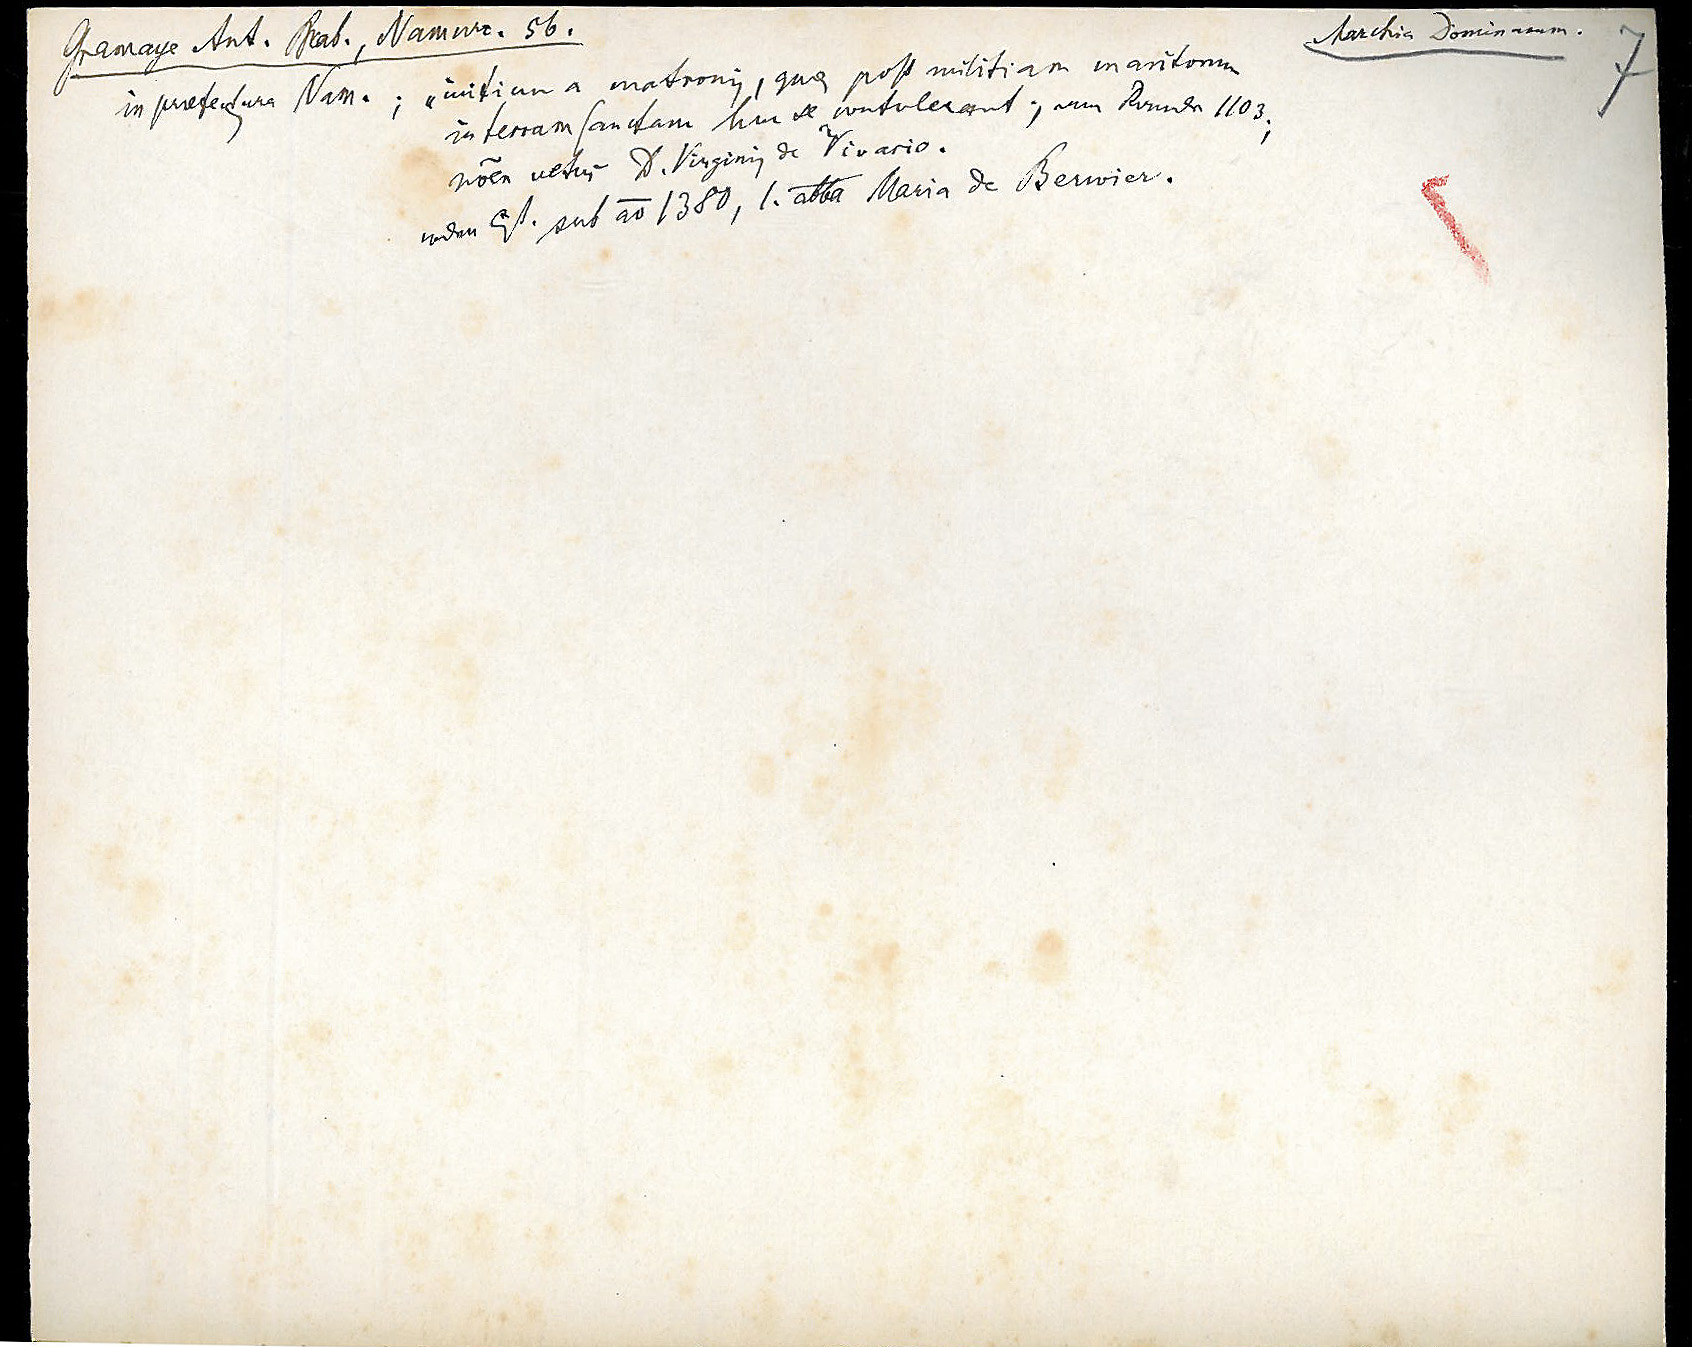 Gramaye Ant. Brab., Namurc. 56.
Marchia Dominarum.
7
in præfectura Nam. ; „initium a matronis, quæ post militiam maritorum
in terram sanctam huc se contulerant ; 1103 ;
nõen vetus D. Virginis de Vivario.
ord. Cist. sub a͞o 1380, 1. abba Maria de Berwier.